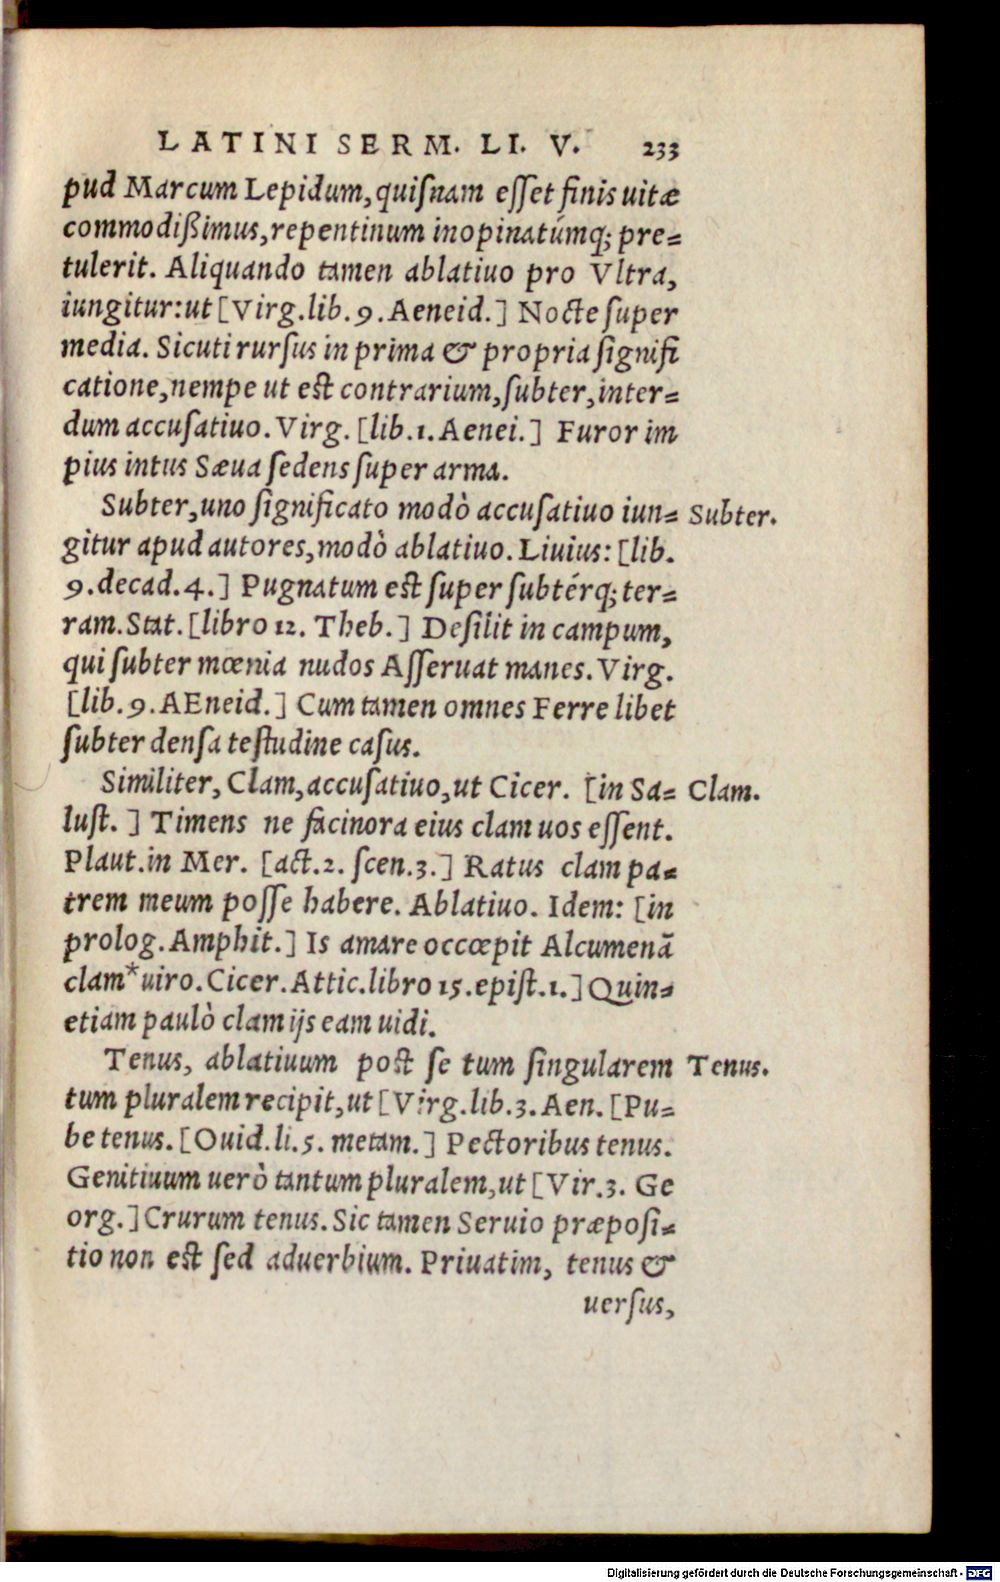 LATINI SERM. LI. V. 233
pud Marcum Lepidum, quiſnam eſſet finis uitæ
commodißimus, repentinum inopinatúmq; pre=
tulerit. Aliquando tamen ablatiuo pro Vltra,
iungitur: ut [Virg. lib. 9. Aeneid.] Nocte ſuper
media. Sicuti rurſus in prima & propria ſignifi
catione, nempe ut eſt contrarium, ſubter, inter=
dum accuſatiuo. Virg. [lib. 1. Aenei.] Furor im
pius intus Sæua ſedens ſuper arma.
Subter, uno ſignificato modò accuſatiuo iun= Subter.
gitur apud autores, modò ablatiuo. Liuius: [lib.
9. decad. 4.] Pugnatum eſt ſuper ſubtérq; ter=
ram. Stat. [libro 12. Theb.] Deſilit in campum,
qui ſubter mœnia nudos Aſſeruat manes. Virg.
[lib. 9. AEneid.] Cum tamen omnes Ferre libet
ſubter denſa teſtudine caſus.
Similiter, Clam, accuſatiuo, ut Cicer. [in Sa= Clam.
luſt. ] Timens ne facinora eius clam uos eſſent.
Plaut. in Mer. [act. 2. ſcen. 3.] Ratus clam pa=
trem meum poſſe habere. Ablatiuo. Idem: [in
prolog. Amphit.] Is amare occœpit Alcumenã
clam* uiro. Cicer. Attic. libro 15. epiſt. 1.] Quin=
etiam paulò clam ijs eam uidi.
Tenus, ablatiuum poſt ſe tum ſingularem Tenus.
tum pluralem recipit, ut [Virg. lib. 3. Aen. [Pu=
be tenus. [Ouid. li. 5. metam.] Pectoribus tenus.
Genitiuum uerò tantum pluralem, ut [Vir. 3. Ge
org.] Crurum tenus. Sic tamen Seruio præpoſi=
tio non eſt ſed aduerbium. Priuatim, tenus &
uerſus,
Digitalisierung gefördert durch die Deutsche Forschungsgemeinschaft - DFG